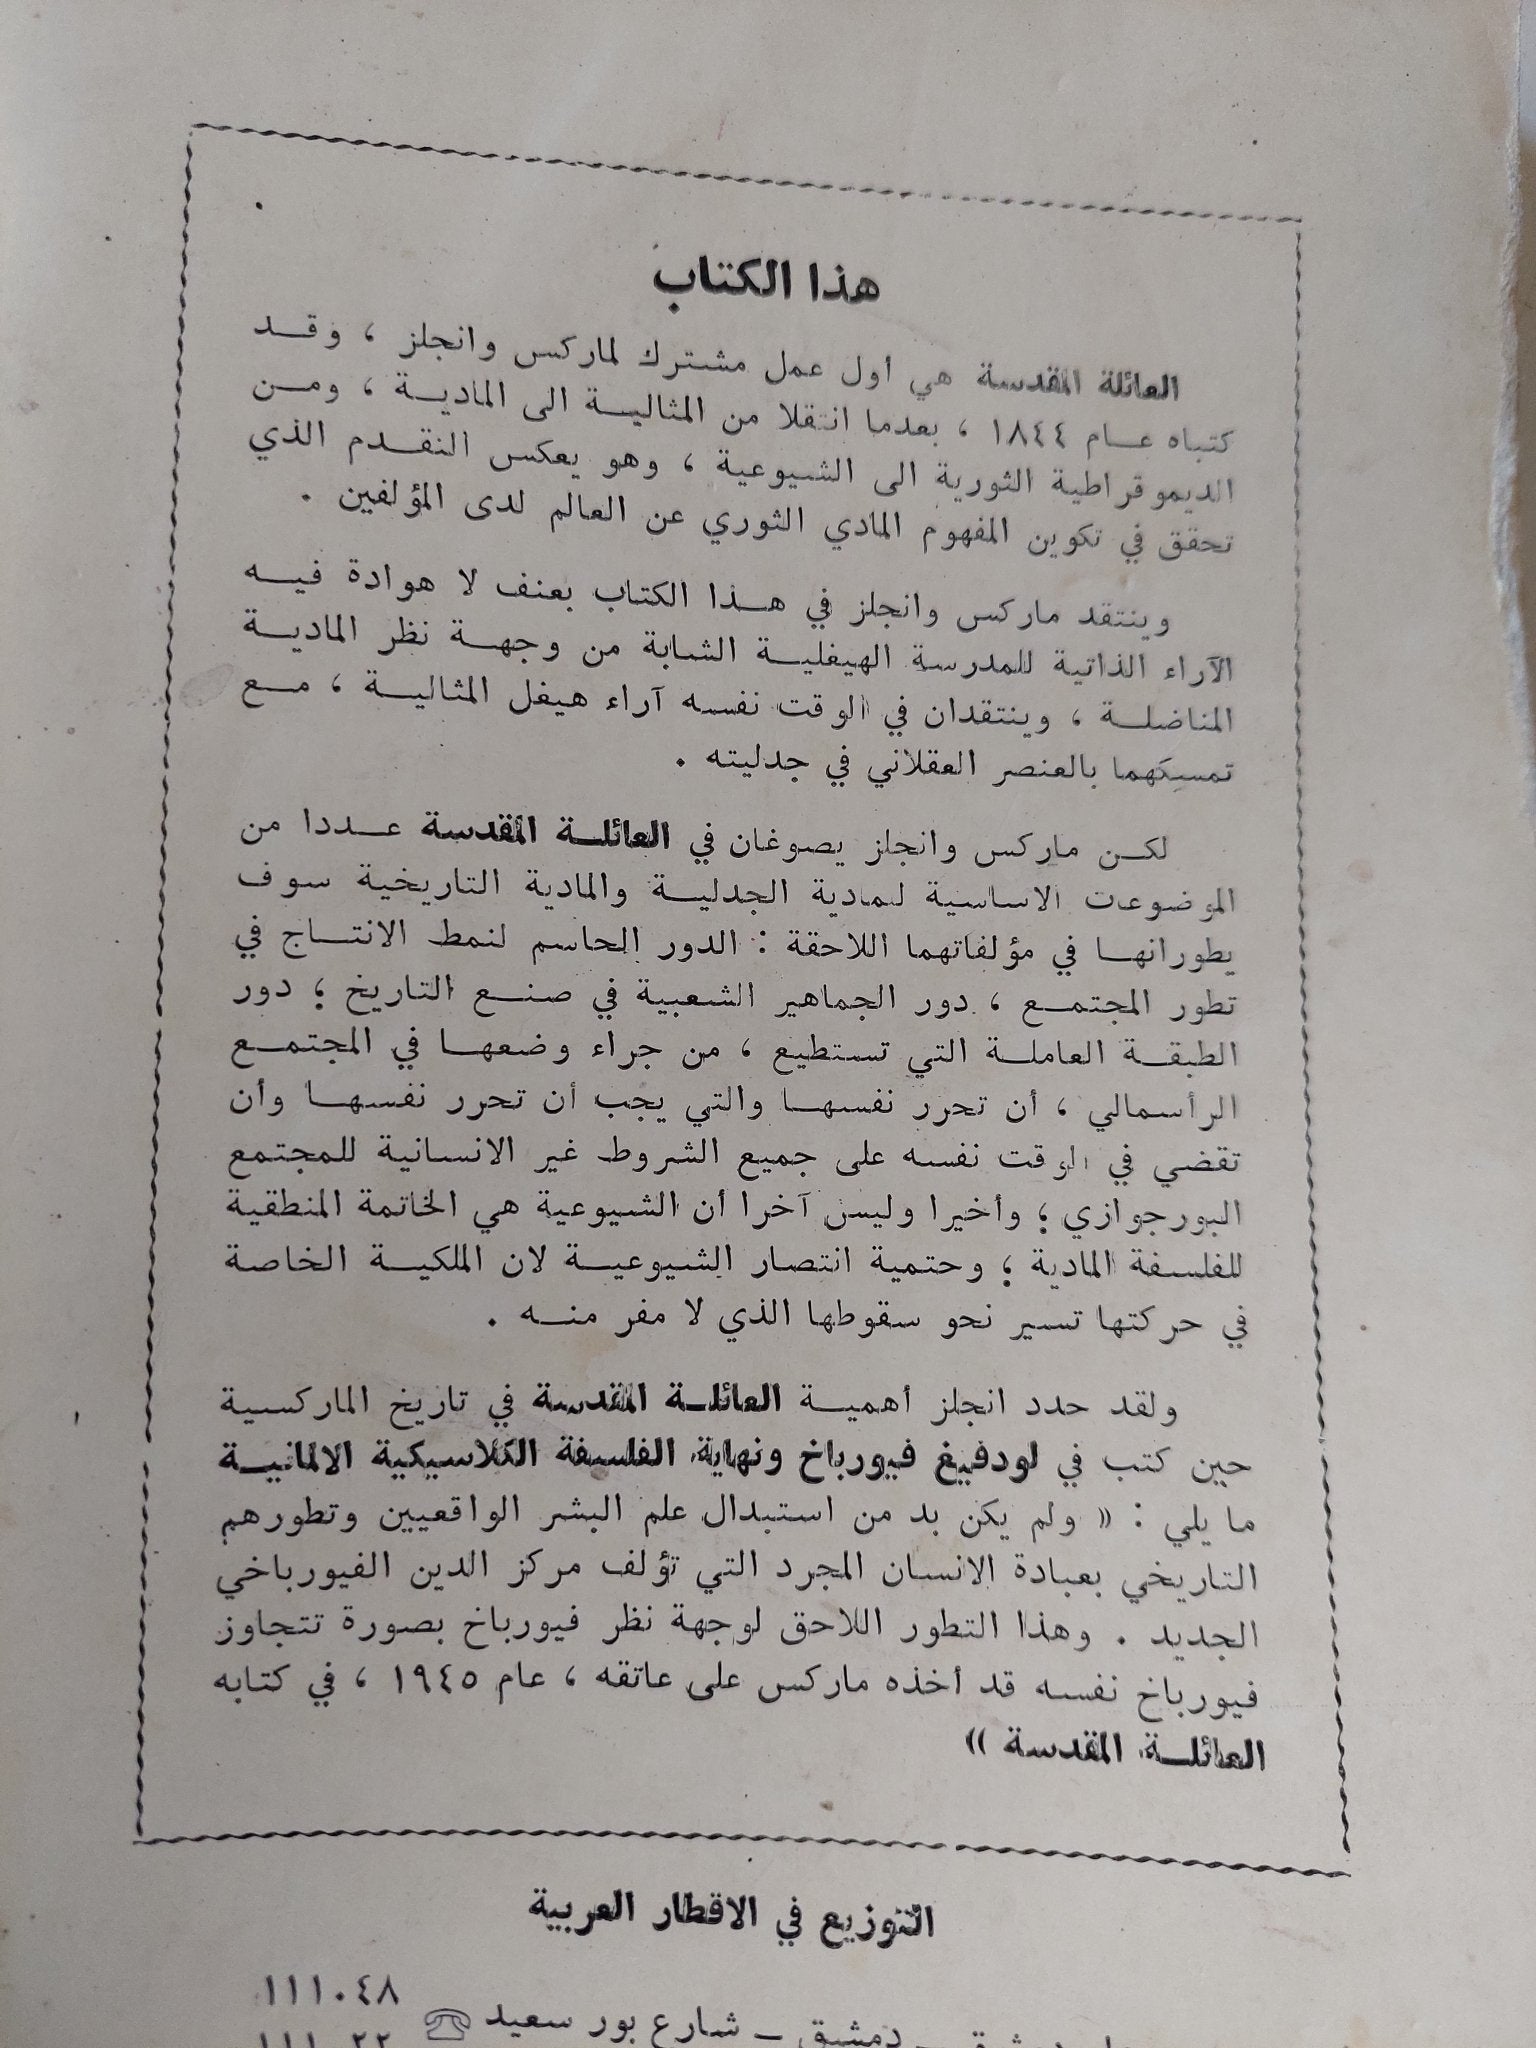 هذا الكتاب
العائلة المقدسة هي أول عمل مشترك لماركس وانجلز ، وقد
كتباه عام ١٨٤٤ ، بعدما انتقلا من المثالية الى المادية ، ومن
الديموقراطية الثورية الى الشيوعية ، وهو يعكس التقدم الذي
تحقق في تكوين المفهوم المادي الثوري عن العالم لدى المؤلفين .
وينتقد ماركس وانجلز في هذا الكتاب بعنف لا هوادة فيه
الآراء الذاتية للمدرسة الهيغلية الشابة من وجهة نظر المادية
المناضلة ، وينتقدان في الوقت نفسه آراء هيغل المثالية ، مع
تمسكهما بالعنصر العقلاني في جدليته .
لكن ماركس وانجلز يصوغان في العائلة المقدسة عددا من
الموضوعات الاساسية لمادية الجدلية والمادية التاريخية سوف
يطورانها في مؤلفاتهما اللاحقة : الدور الحاسم لنمط الانتاج في
تطور المجتمع ، دور الجماهير الشعبية في صنع التاريخ ؛ دور
الطبقة العاملة التي تستطيع ، من جراء وضعها في المجتمع
الرأسمالي ، أن تحرر نفسها والتي يجب أن تحرر نفسها وأن
تقضي في الوقت نفسه على جميع الشروط غير الانسانية للمجتمع
البورجوازي ؛ وأخيرا وليس آخرا أن الشيوعية هي الخاتمة المنطقية
للفلسفة المادية ؛ وحتمية انتصار الشيوعية لان الملكية الخاصة
في حركتها تسير نحو سقوطها الذي لا مفر منه .
ولقد حدد انجلز أهمية العائلة المقدسة في تاريخ الماركسية
حين كتب في لودفيغ فيورباخ ونهاية الفلسفة الكلاسيكية الالمانية
ما يلي : « ولم يكن بد من استبدال علم البشر الواقعيين وتطورهم
التاريخي بعبادة الانسان المجرد التي تؤلف مركز الدين الفيورباخي
الجديد . وهذا التطور اللاحق لوجهة نظر فيورباخ بصورة تتجاوز
فيورباخ نفسه قد أخذه ماركس على عاتقه ، عام ١٩٤٥ ، في كتابه
العائلة المقدسة »
التوزيع في الاقطار العربية
١١١٠٤٨
دمشق - شارع بور سعيد